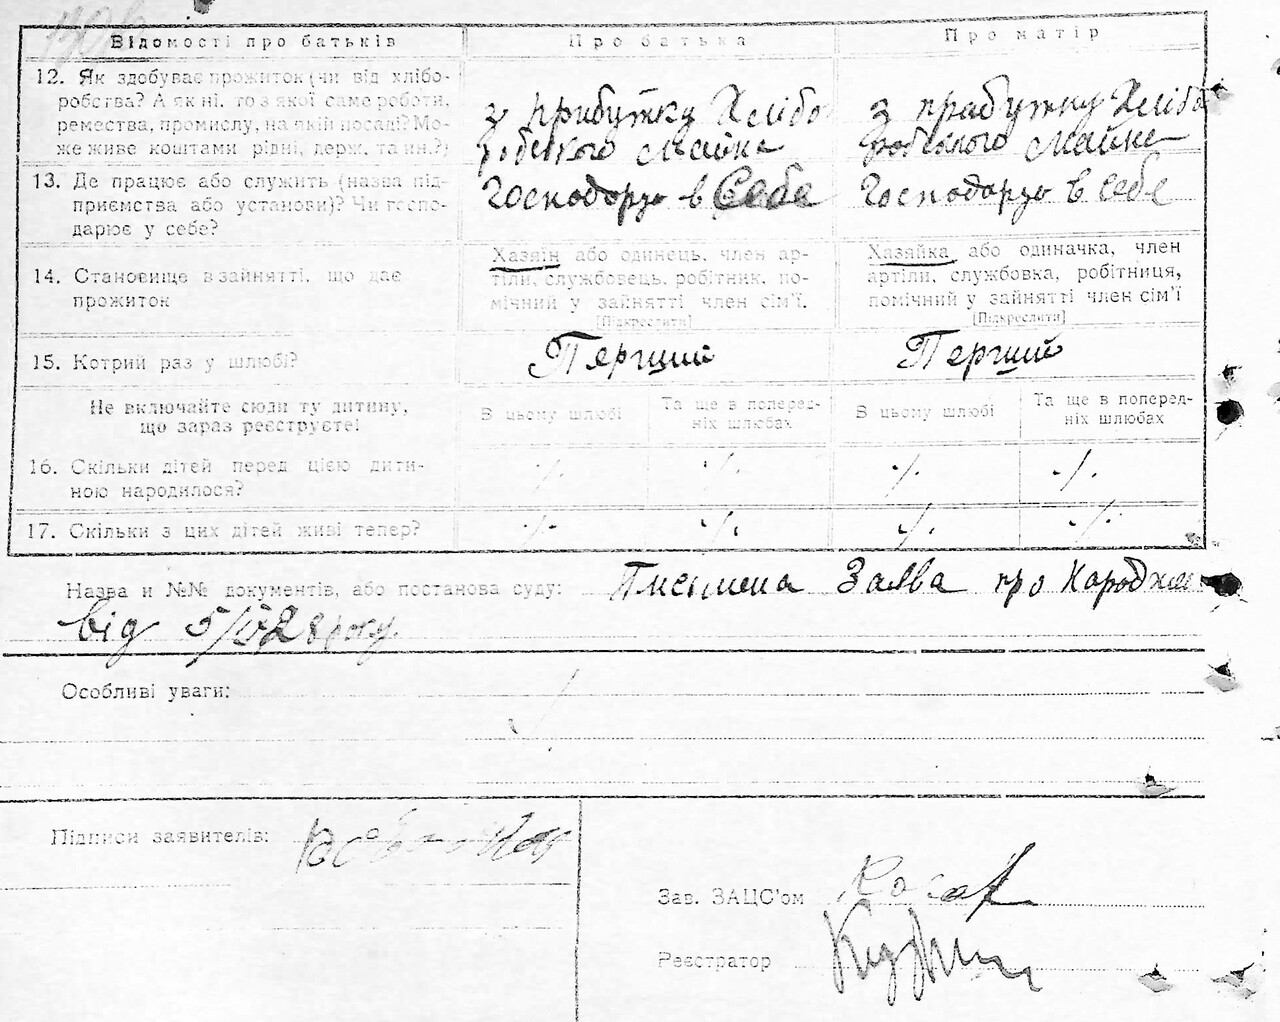 Відомості про батьків
Про батька
Про матір
12. Як здобуває прожиток (чи від хлібо-
робства? А як ні, то з якої саме роботи,
ремества, промислу, на якій посаді? Мо-
же живе коштами рідні, держ. та ин.?)
з прибутку Хлібо
робського майна
з прибутку Хлібо
робського майна
13. Де працює або служить (назва під-
приємства або установи)? Чи госпо-
дарює у себе?
Господарує в Себе
Господарує в себе
14. Становище в зайнятті, що дає
прожиток
Хазяїн або одинець, член ар-
тіли, службовець, робітник, по-
мічний у зайнятті член сім'ї.
[Підкреслити]
Хазяйка або одиначка, член
артіли, службовка, робітниця,
помічний у зайнятті член сім'ї
[Підкреслити]
15. Котрий раз у шлюбі?
Перший
Перший
Не включайте сюди ту дитину,
що зараз реєструєте!
В цьому шлюбі
Та ще в поперед-
ніх шлюбах
В цьому шлюбі
Та ще в поперед-
ніх шлюбах
16. Скільки дітей перед цією дити-
ною народилося?
17. Скільки з цих дітей живі тепер?
Назва и №№ документів, або постанова суду: Письмена Заява про
від 5/
28 року.
Особливі уваги:
Підписи заявителів:
Зав. ЗАЦС'ом
Реєстратор